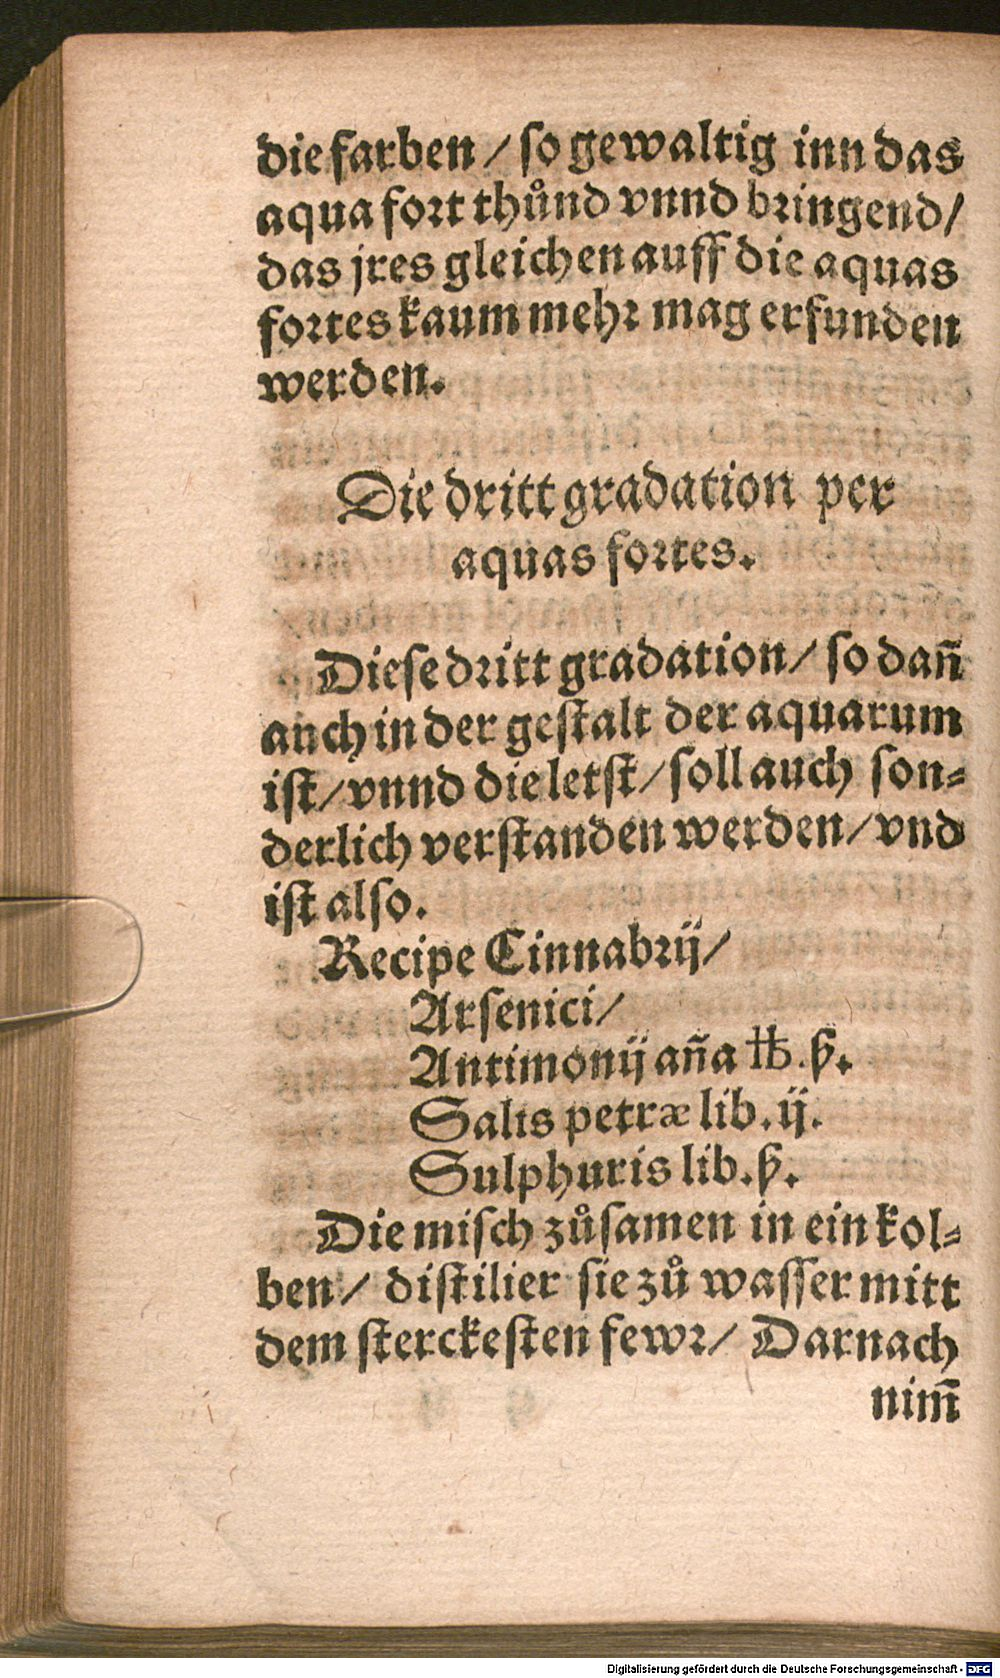 die farben / so gewaltig inn das
aqua fort thuͦnd vnnd bringend /
das jres gleichen auff die aquas
fortes kaum mehr mag erfunden
werden.
Die dritt gradation per
aquas fortes.
Diese dritt gradation / so dañ
auch in der gestalt der aquarum
ist / vnnd die letst / soll auch son-
derlich verstanden werden / vnd
ist also.
Recipe Cinnabrij /
Arsenici /
Antimonij aña ℔. ß.
Salis petræ lib. ij.
Sulphuris lib. ß.
Die misch zuͦsamen in ein kol-
ben / distilier sie zuͦ wasser mitt
dem sterckesten fewr / Darnach
nim̃
Digitalisierung gefördert durch die Deutsche Forschungsgemeinschaft - DFG